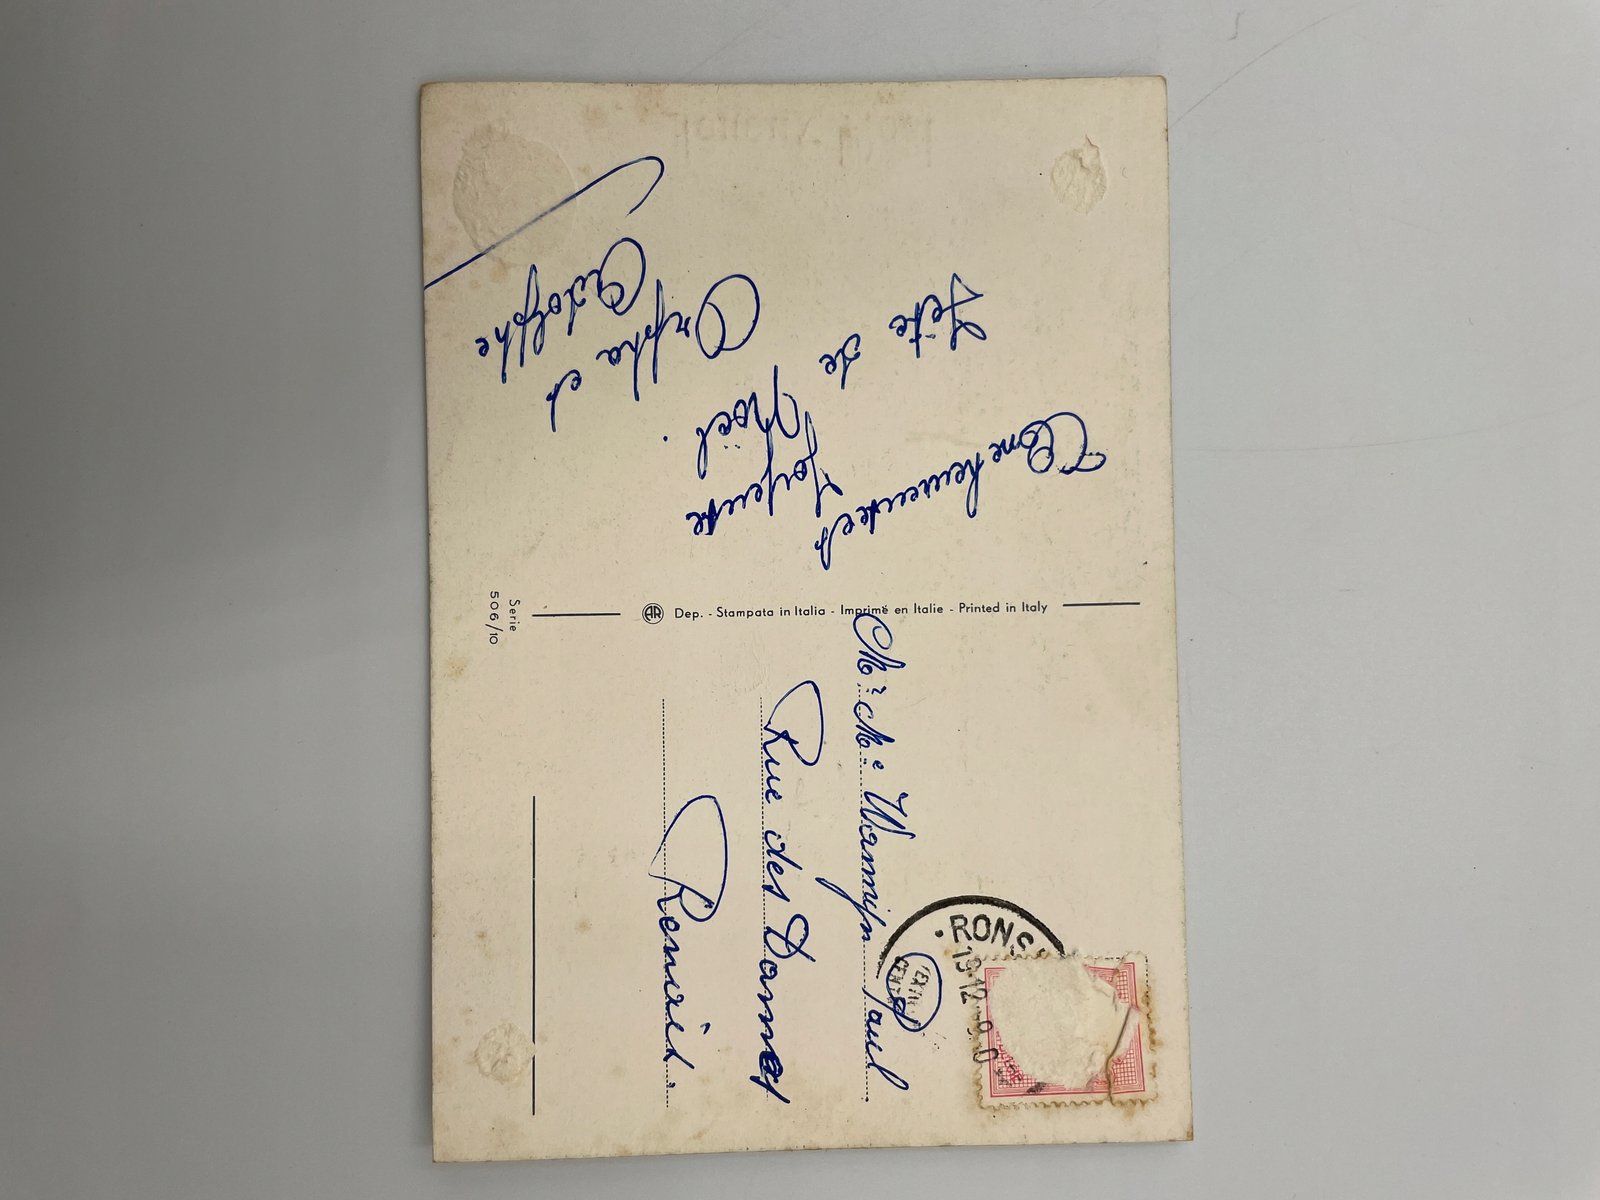 Une heureuse et
Joyeuse
Fête de
Noël.
Orpha et
Adolphe
Serie
506/10
AR Dep. - Stampata in Italia - Imprimé en Italie - Printed in Italy
Mr. Me. Warnijn Paul
Rue des Dames
Renaix.
RONS
19-12
TEXTI
CENT